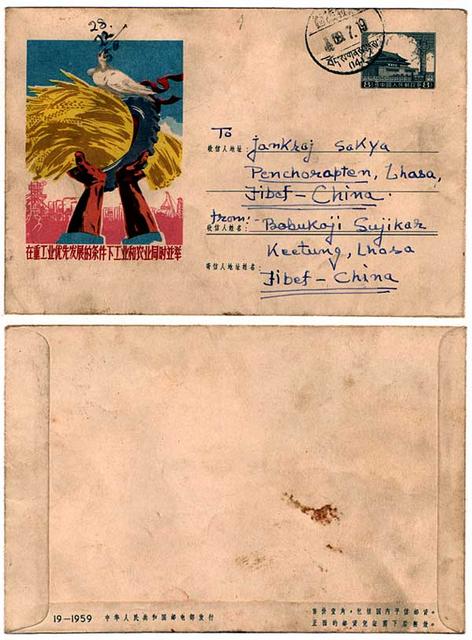 28.
7.19
8 中国人民邮政 8
To
收信人地址:
Jankraj Sakya
Penchorapten, Lhasa,
Tibet - China.
from:-
收信人姓名:
Babukaji Sujikar
Keetung, Lhasa
寄信人地址姓名:
Tibet - China
在重工业优先发展的条件下工业和农业同时並举
19-1959 中华人民共和国邮电部发行